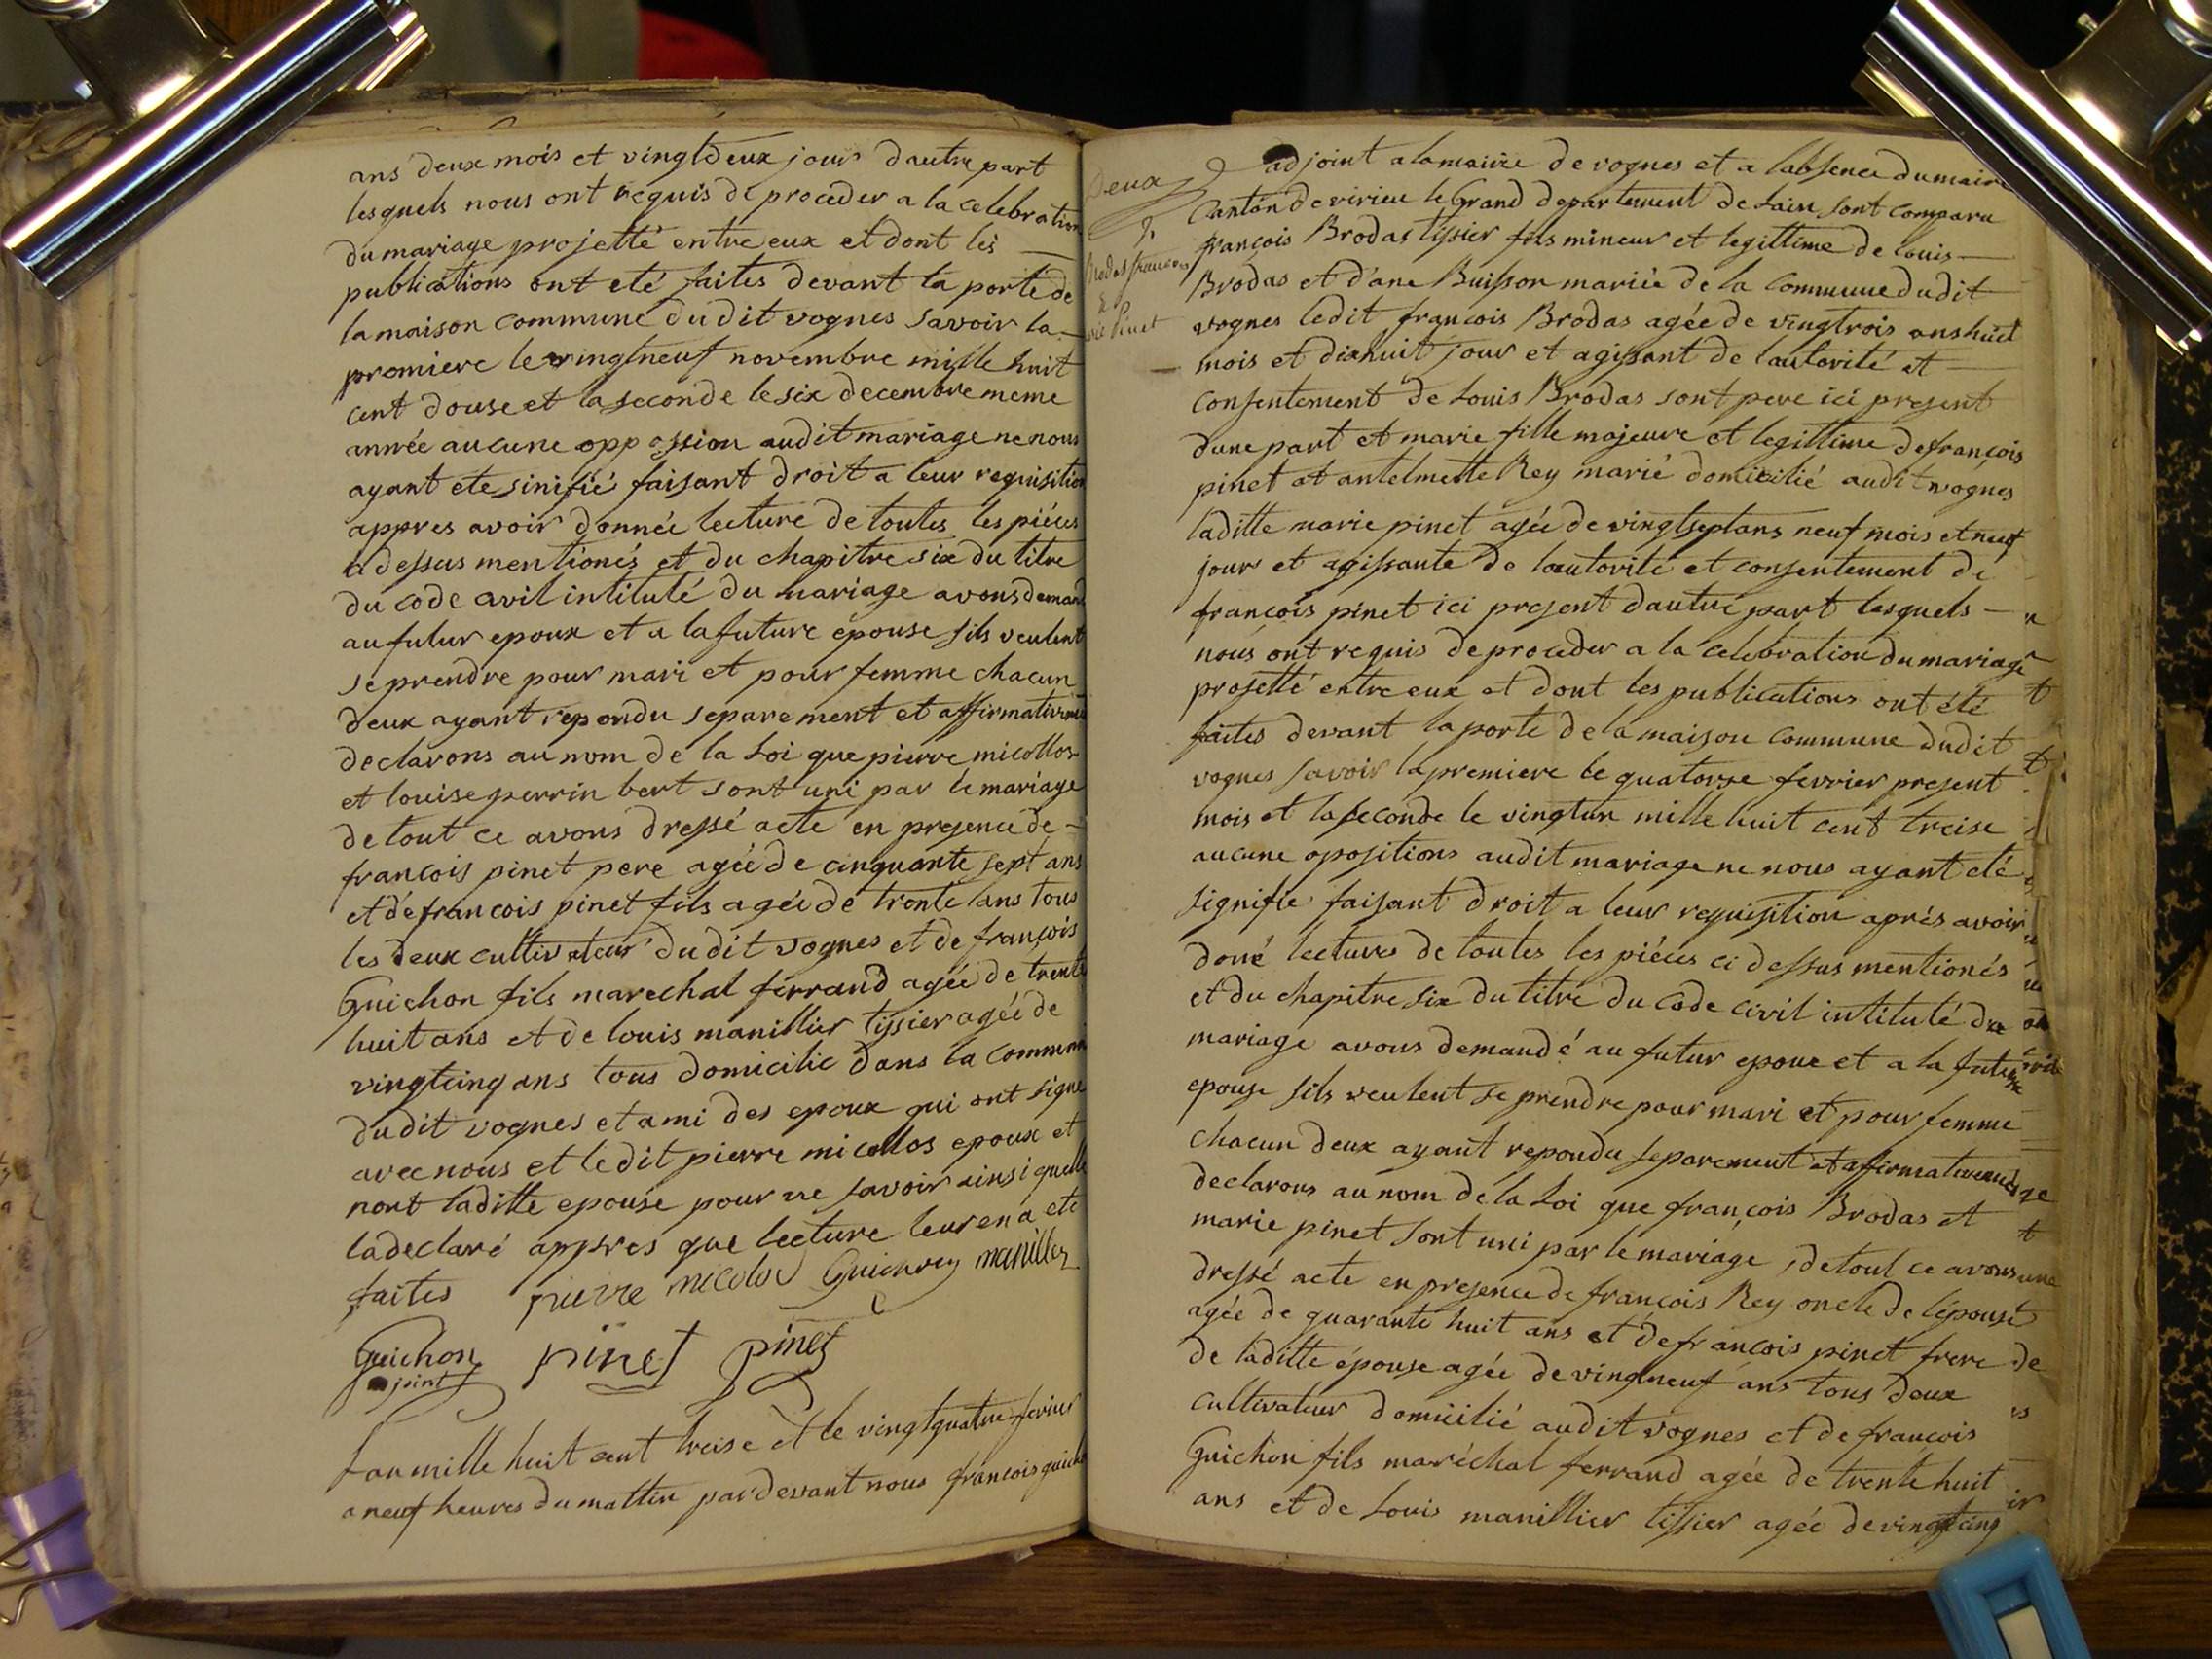 ans deux mois et vingtdeux jours dautre part
lesquels nous ont requis de proceder a la celebration
du mariage projetté entre eux et dont les
publications ont eté faites devant la porte de
la maison commune du dit vognes savoir la
premiere le vingtneuf novembre mille huit
cent douse et la seconde le six decembre meme
année aucune oppossion audit mariage ne nous
ayant ete sinifié faisant droit a leur requisition
appres avoir donnée lecture de toutes les piéces
dessus mentionés et du chapitre six du titre
du code civil intitulé du mariage avons demand
au futur epoux et a la future épouse sils veulent
se prendre pour mari et pour femme chacun
deux ayant repondu separement et affirmativem
declarons au nom de la Loi que pierre micollos
et louise perrin bert sont uni par le mariage
de tout ce avons dressé acte en presence de
francois pinet pere agée de cinquante sept ans
et de francois pinet fils agée de trente ans tous
les deux cultivateur dudit vognes et de françois
Guichon fils marechal ferrand agée de trente
huit ans et de louis manillier tissier agée de
vingtcinq ans tous domicilie dans la commune
dudit vognes et ami des epoux qui ont signe
avec nous et ledit pierre micollos epoux et
nont laditte epouse pour ne savoir ainsi quelle
la declaré appres que lecture leur en a ete
faites pierre micolos Guichon manillier
Guichon pinet pinet
joint
Lan mille huit cent treise et le vingtquatre fevrier
a neuf heures du mattin pardevant nous francois guichon
Deux
adjoint a la mairie de vognes et a labsence du maire
Canton de virieu le Grand departement de Lain sont comparu
Brodas francois
françois Brodas tissier fils mineur et legittime de louis
&
Brodas et d'ane Buisson mariée de la commune dudit
Pinet
vognes ledit françois Brodas agée de vingtrois ans huit
mois et dixhuit jour et agissant de lautorité et
consentement de Louis Brodas sont pere ici present
dune part et marie fille majeure et legittime de françois
pinet et antelmette Rey marié domicilié audit vognes
laditte marie pinet agée de vingtsept ans neuf mois et neuf
jours et agissante de lautorité et consentement de
françois pinet ici present dautre part lesquels
nous ont requis de proceder a la celebration du mariage
projetté entre eux et dont les publications ont été
faites devant la porte de la maison commune dudit
vognes savoir la premiere le quatorze fevrier present
mois et la seconde le vingtun mille huit cent treise
aucune opositions audit mariage ne nous ayant eté
signifie faisant droit a leur requisition aprés avoir
doné lectures de toutes les piéces ci dessus mentionés
et du chapitre six du titre du Code civil intitulé du
mariage avons demandé au futur epoux et a la future
epouse sils veulent se prendre pour mari et pour femme
chacun deux ayant repondu separement et affirmativement
declarons au nom de la Loi que françois Brodas et
marie pinet sont uni par le mariage, de tout ce avons
dressé acte en presence de francois Rey oncle de lépouse
agée de quarante huit ans et de francois pinet frere
de laditte épouse agée de vingtneuf ans tous deux
cultivateur domicilié audit vognes et de francois
Guichon fils maréchal ferrand agée de trente huit
ans et de Louis manillier tissier agée de vingtcinq